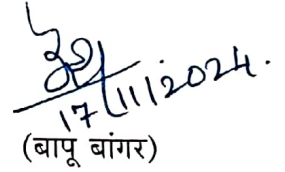 17/11/2024.
(बापू बांगर)